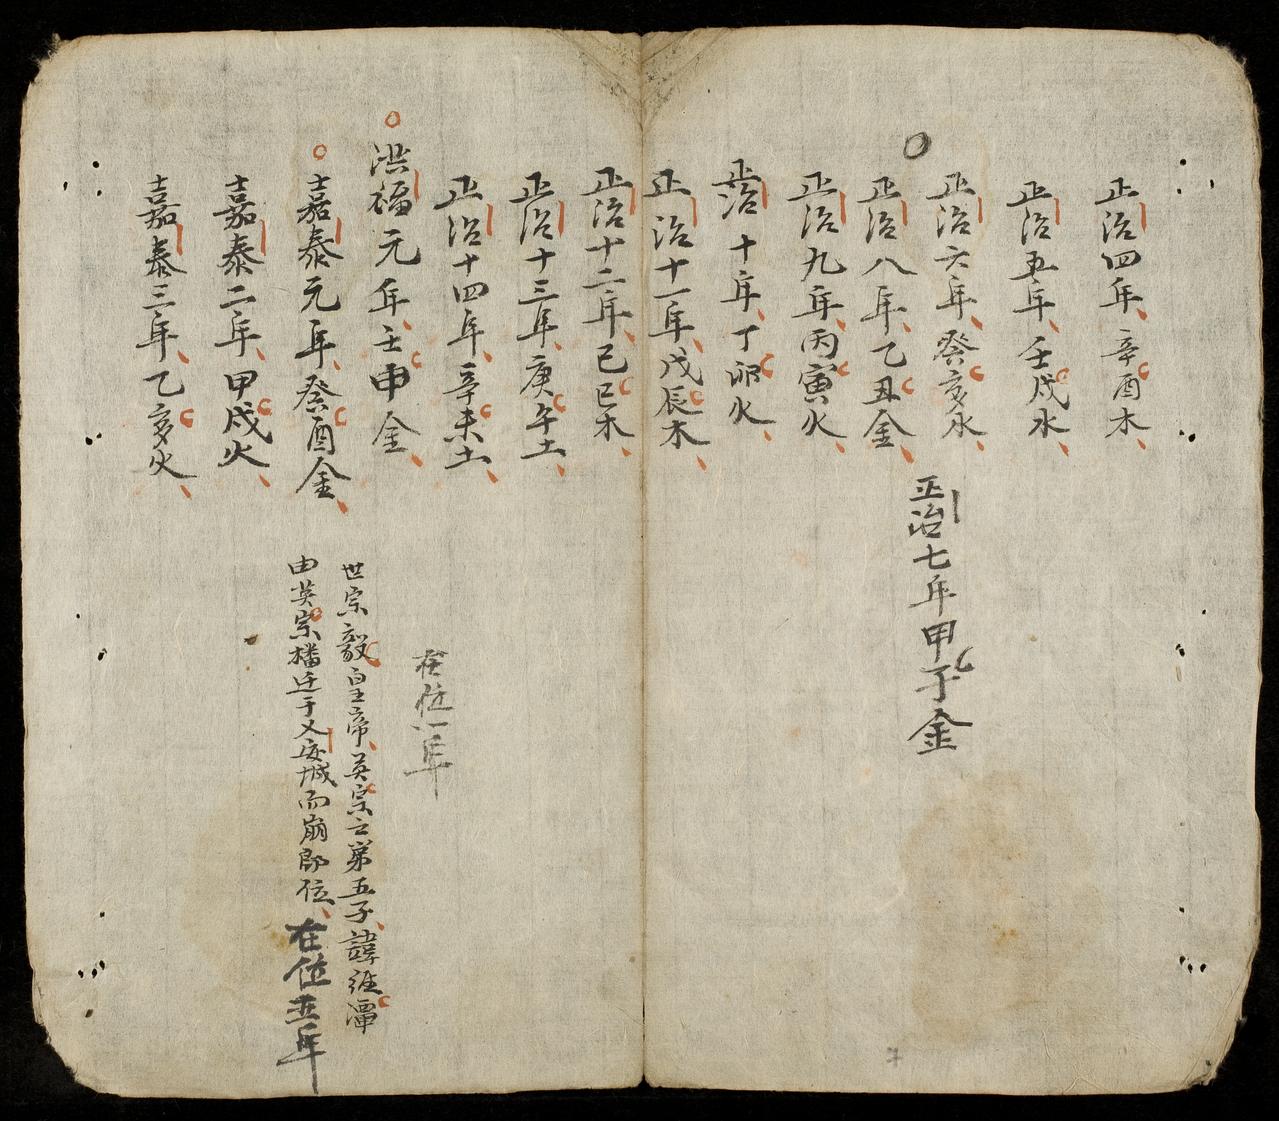 正治四年辛酉木
正治五年壬戌水
正治六年癸亥水
正治七年甲子金
正治八年乙丑金
正治九年丙寅火
正治十年丁卯火
正治十一年戊辰木
正治十二年己巳木
正治十三年庚午土
正治十四年辛未土
洪福元年壬申金
在位八年
嘉泰元年癸酉金
世宗毅皇帝英宗之第五子諱維潭
由英宗播迁于乂安城而崩即位在位五年
嘉泰二年甲戌火
嘉泰三年乙亥火